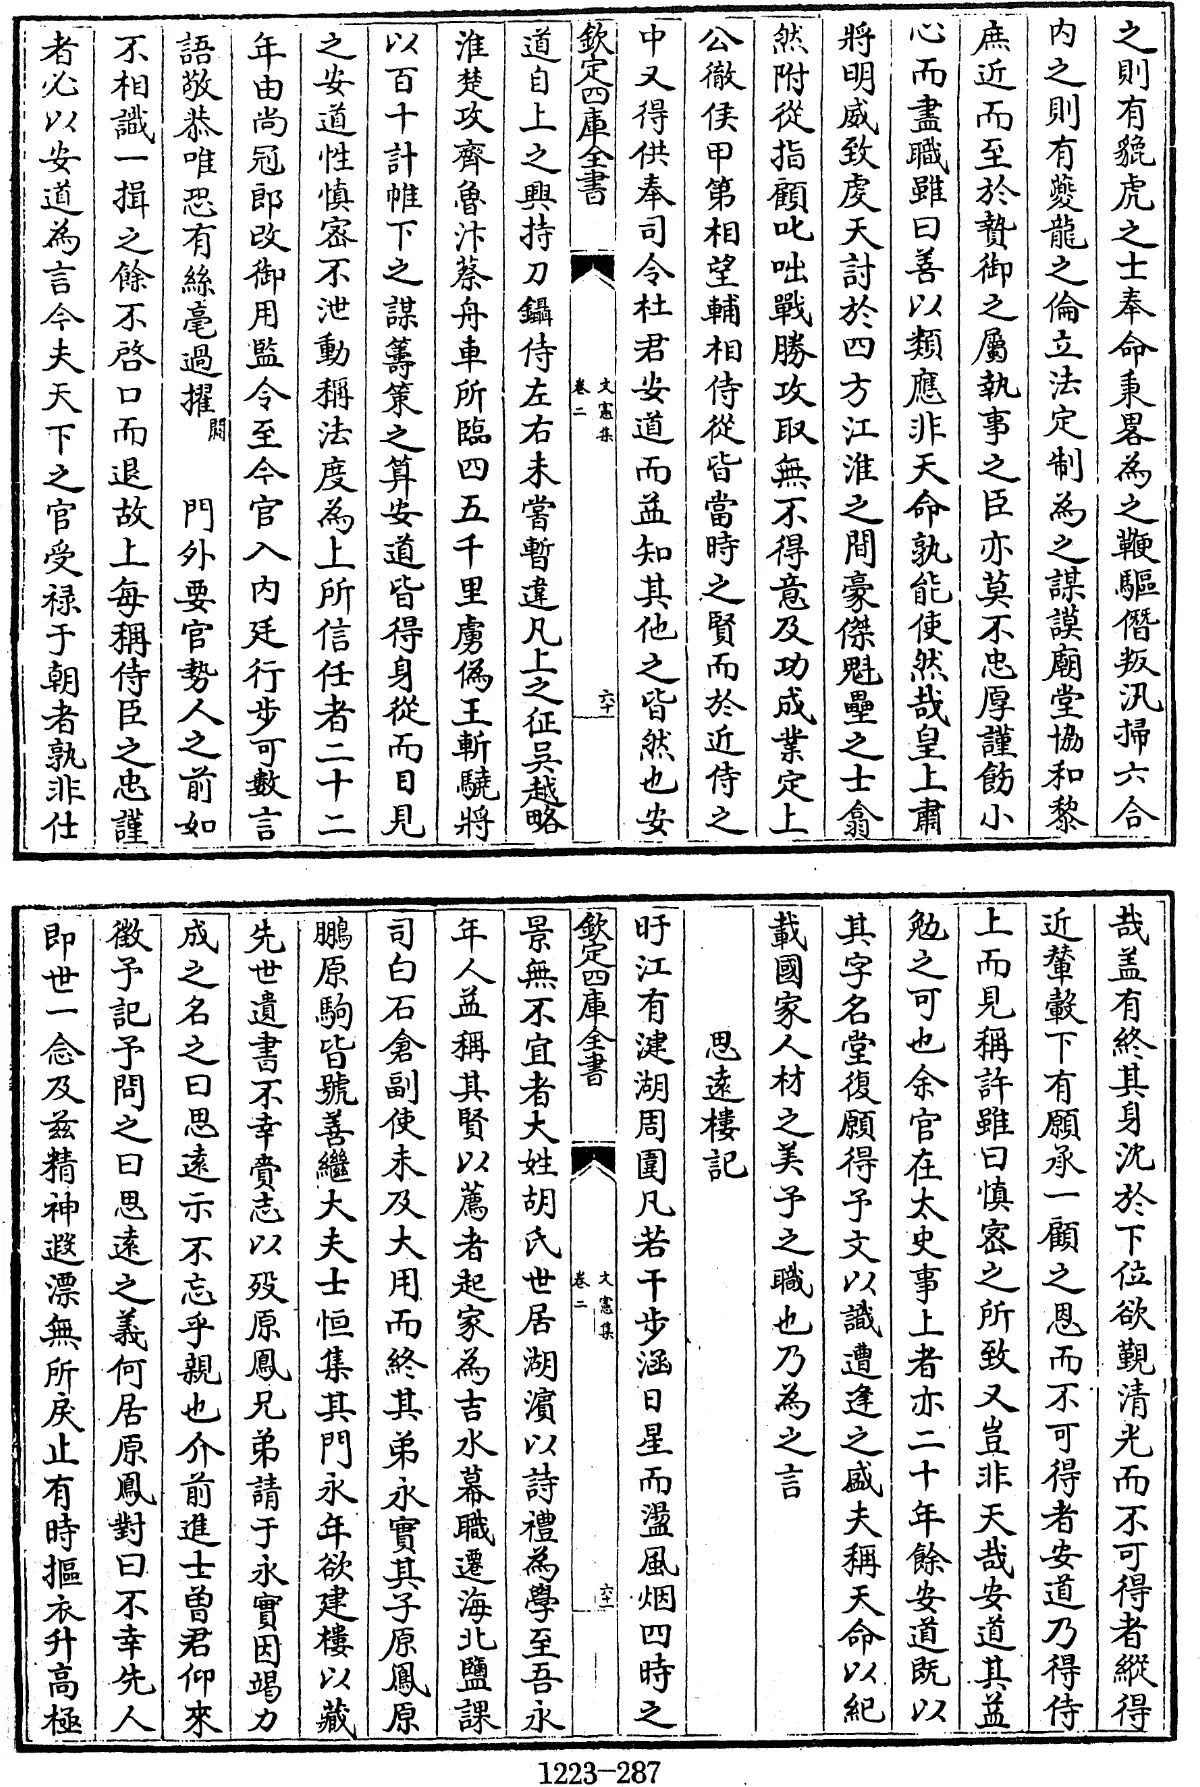 之則有貔虎之士奉命秉畧為之鞭驅僭叛汛掃六合
内之則有夔龍之倫立法定制為之謀謨廟堂協和黎
庶近而至於贄御之屬執事之臣亦莫不忠厚謹飭小
心而盡職雖曰善以類應非天命孰能使然哉皇上肅
將明威致䖍天討於四方江淮之間豪傑魁壘之士翕
然附從指顧叱咄戰勝攻取無不得意及功成業定上
公徹侯甲第相望輔相侍從皆當時之賢而於近侍之
中又得供奉司令杜君安道而益知其他之皆然也安
欽定四庫全書
文憲集
卷二
六十
道自上之興持刀鑷侍左右未嘗暫違凡上之征吳越略
淮楚攻齊魯汴蔡舟車所臨四五千里虜偽王斬驍將
以百十計帷下之謀籌策之算安道皆得身從而目見
之安道性慎宻不泄動稱法度為上所信任者二十二
年由尚冠郎改御用監令至今官入内廷行步可數言
語敬恭唯恐有絲毫過擢闕門外要官勢人之前如
不相識一揖之餘不啓口而退故上每稱侍臣之忠謹
者必以安道為言今夫天下之官受禄于朝者孰非仕
哉盖有終其身沈於下位欲覲清光而不可得者縱得
近輦轂下有願承一顧之恩而不可得者安道乃得侍
上而見稱許雖曰慎宻之所致又豈非天哉安道其益
勉之可也余官在太史事上者亦二十年餘安道既以
其字名堂復願得予文以識遭逢之盛夫稱天命以紀
載國家人材之美予之職也乃為之言
思遠樓記
盱江有㴾湖周圍凡若干步涵日星而盪風烟四時之
欽定四庫全書
文憲集
卷二
六十一
景無不宜者大姓胡氏世居湖濵以詩禮為學至吾永
年人益稱其賢以薦者起家為吉水幕職遷海北鹽課
司白石倉副使未及大用而終其弟永實其子原鳳原
鵬原駒皆號善繼大夫士恒集其門永年欲建樓以藏
先世遺書不幸賫志以殁原鳳兄弟請于永實因竭力
成之名之曰思遠示不忘乎親也介前進士曽君仰來
徵予記予問之曰思遠之義何居原鳳對曰不幸先人
即世一念及兹精神遐漂無所戾止有時摳衣升高極
1223-287